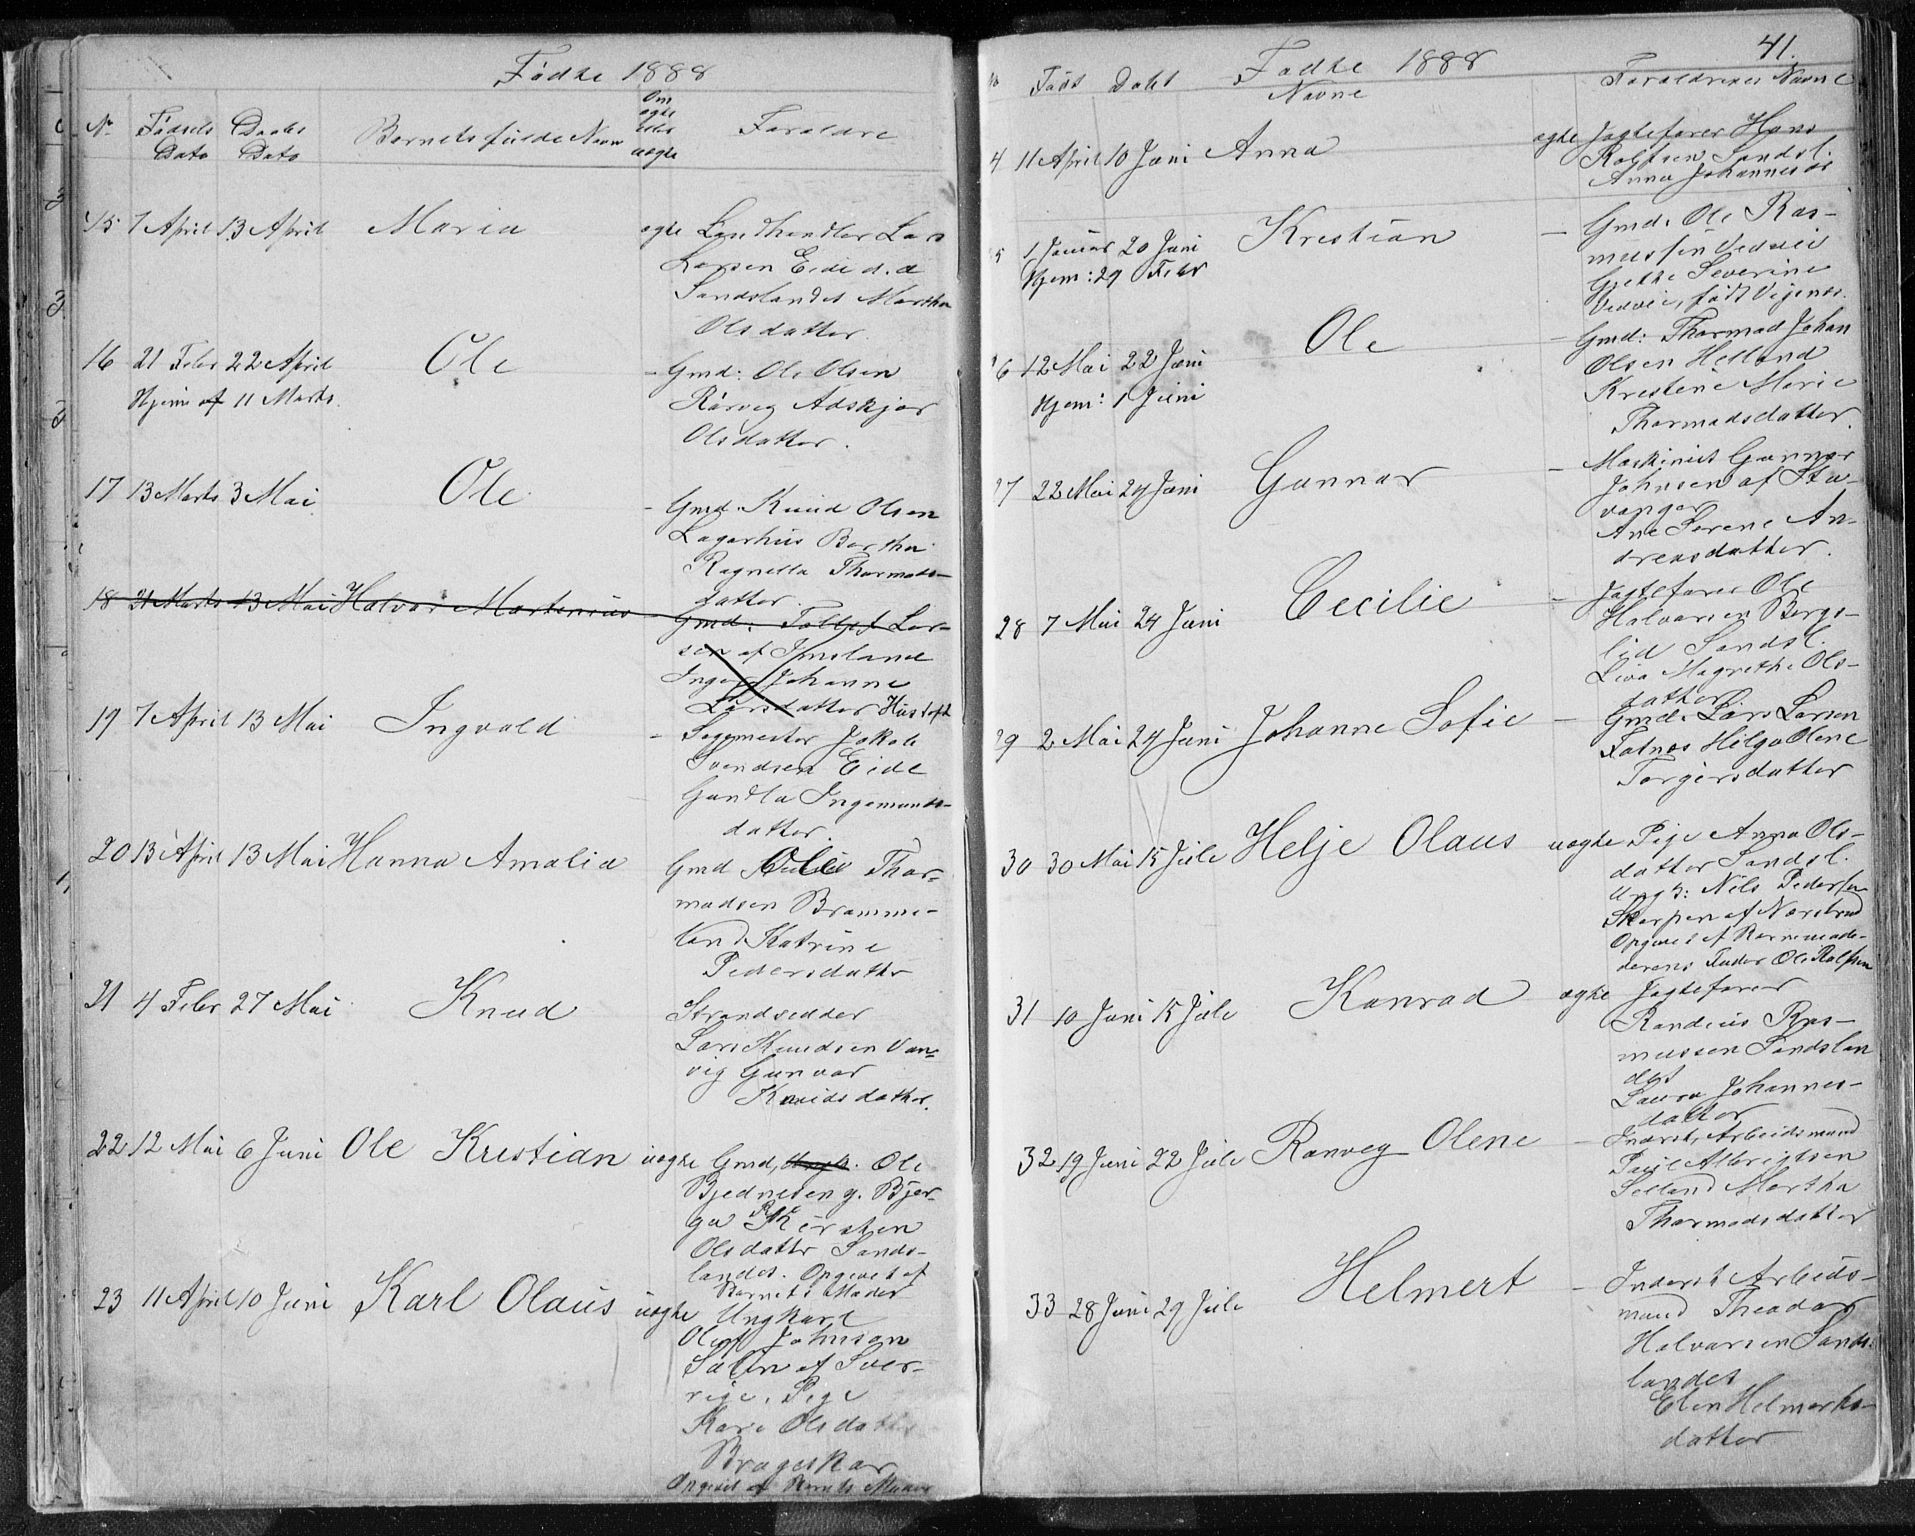 Fødte 1888
Nr Fødsels Dato Daabs Dato Barnets fulde Navn Om ægte eller uægte Forældre
15 7 April 13 April Maria ægte Landhandler Lars
Larsen Eide d. a
Sandslandet Martha
Olsdatter
16 21 Febr 22 April Ole - Gmd: Ole Olsen
Hjem af 11 Marts.
Rørveg
Olsdatter.
17 13 Marts 3 Mai Ole - Gmd. Knud Olsen
Lagarhus Bertha
Ragnella Thormods-
datter.
18 21 Marts 13 Mai Halvor Martenius - Gmd: Lar-
sen af Imsland
Johanne
Larsdatter Hustoft
19 7 April 13 Mai Ingvald - Sagmester Jakob
Svendsen Eide
Gundla Ingemunds-
datter.
20 13 April 13 Mai Hanna Amalia Gmd Thor-
modsen Bramme-
land Katrine
Pedersdatter
21 4 Febr 27 Mai Knud Strandsidder
Lars Knudsen Van-
vig Gunvor
Knudsdatter.
22 12 Mai 6 Juni Ole Kristian uægte Gmd, Ungk. Ole
Bjednesen g. Bjer-
ga Kirsten
Olsdatter Sands-
landet. Opgivet af
Barnets Moder
23 11 April 10 Juni Karl Olaus uægte Ungkarl
Olof Johnson
af Sver-
rige. Pige
Kari Olsdatter
Brageskar
Opgivet af Barnets Moder
41.
Født Døbt Fødte 1888
Navne
Forældrenes Navne
4 11 April 10 Juni Anna ægte Jagtefører Hans
Rolfsen Sandsl.
Anna Johannesdr
5 1 Januar 20 Juni Kristian - Gmd: Ole Ras-
Hjem: 29 Febr
mussen Vedvei
Gjette Severine
Vedvei, født Vigenes.
6 12 Mai 22 Juni Ole - Gmd: Thormod Johan
Hjem: 1 Juni
Olsen Helland
Kristene Marie
Thormodsdatter.
27 22 Mai 24 Juni Gunnar - Maskinist Gunnar
Johnsen af Sta-
vanger
Ane Serene An-
dreasdatter.
28 7 Mai 24 Juni Cecilie - Jagtefører Ole
Halvorsen Bergs-
lid Sandsl.
Liva Magrethe Ols-
datter
29 2 Mai 24 Juni Johanne Sofie - Gmd: Lars Larsen
Fatnes Helga Olene
Torgersdatter
30 30 Mai 15 Jule Helje Olaus uægte Pige Anna Ols-
datter Sandsl.
Ungk: Nils Pedersen
Skorpen af Nærstrand
Opgivet af Barnemode-
derens Fader Ole Rolfsen
31 10 Juni 15 Jule Konrad ægte Jagtefører
Randeus Ras-
mussen Sandslan
det
Laura Johannes-
datter
32 19 Juni 22 Jule Ranveg Olene - Inderst, Arbeidsmand
Paul Albrigtsen
Selland Martha
Thormodsdatter
33 28 Juni 29 Jule Helmert - Inderst Arbeids-
mand Theodor
Halvorsen Sands-
landet
Elen Helmerts-
datter